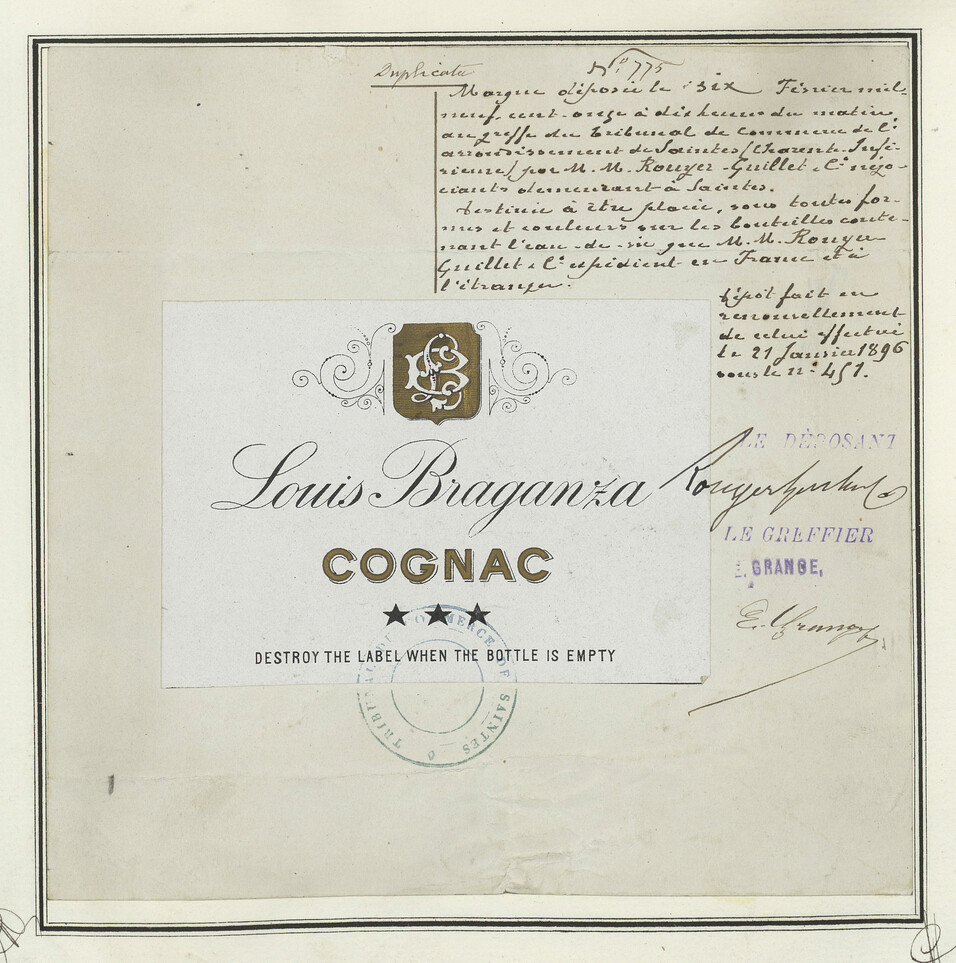 Duplicata
N° 775
Marque déposée le six Février mil-
neuf cent onze à dix heures du matin
au greffe du Tribunal de Commerce de l'
arrondissement de Saintes (Charente-Infé-
rieure) par M. M. Rouyer-Guillet & Cie négo-
ciants demeurant à Saintes.
Destinée à être placée, sous toutes for-
mes et couleurs sur les bouteilles conte-
nant l'eau-de-vie que M. M. Rouyer
Guillet & Cie expédient en France et à
l'étranger.
Dépôt fait en
renouvellement
de celui effectué
le 21 Janvier 1896
sous le n° 451.
LB
Louis Braganza
COGNAC
★ ★ ★
DESTROY THE LABEL WHEN THE BOTTLE IS EMPTY
TRIBUNAL DE COMMERCE DE SAINTES
LE DÉPOSANT
Rouyer Guillet & Co
LE GREFFIER
E. GRANGE,
E. Grange